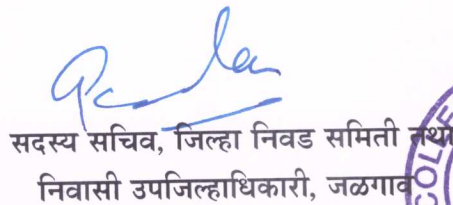 सदस्य सचिव, जिल्हा निवड समिती तथा
निवासी उपजिल्हाधिकारी, जळगाव